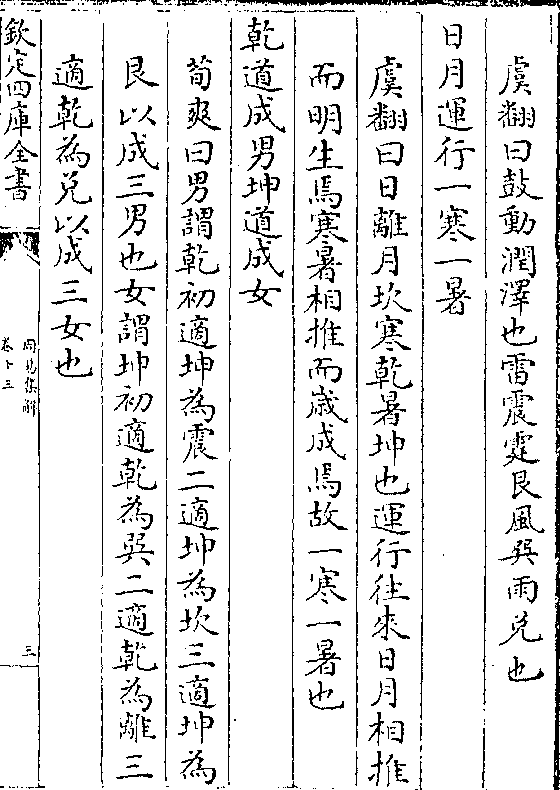 虞翻曰鼓動潤澤也雷震霆艮風巽雨兌也
日月運行一寒一暑
虞翻曰日離月坎寒乾暑坤也運行往來日月相推
而明生焉寒暑相推而歲成焉故一寒一暑也
乾道成男坤道成女
荀爽曰男謂乾初適坤為震二適坤為坎三適坤為
艮以成三男也女謂坤初適乾為巽二適乾為離三
適乾為兌以成三女也
欽定四庫全書
周易集解
卷十三
三